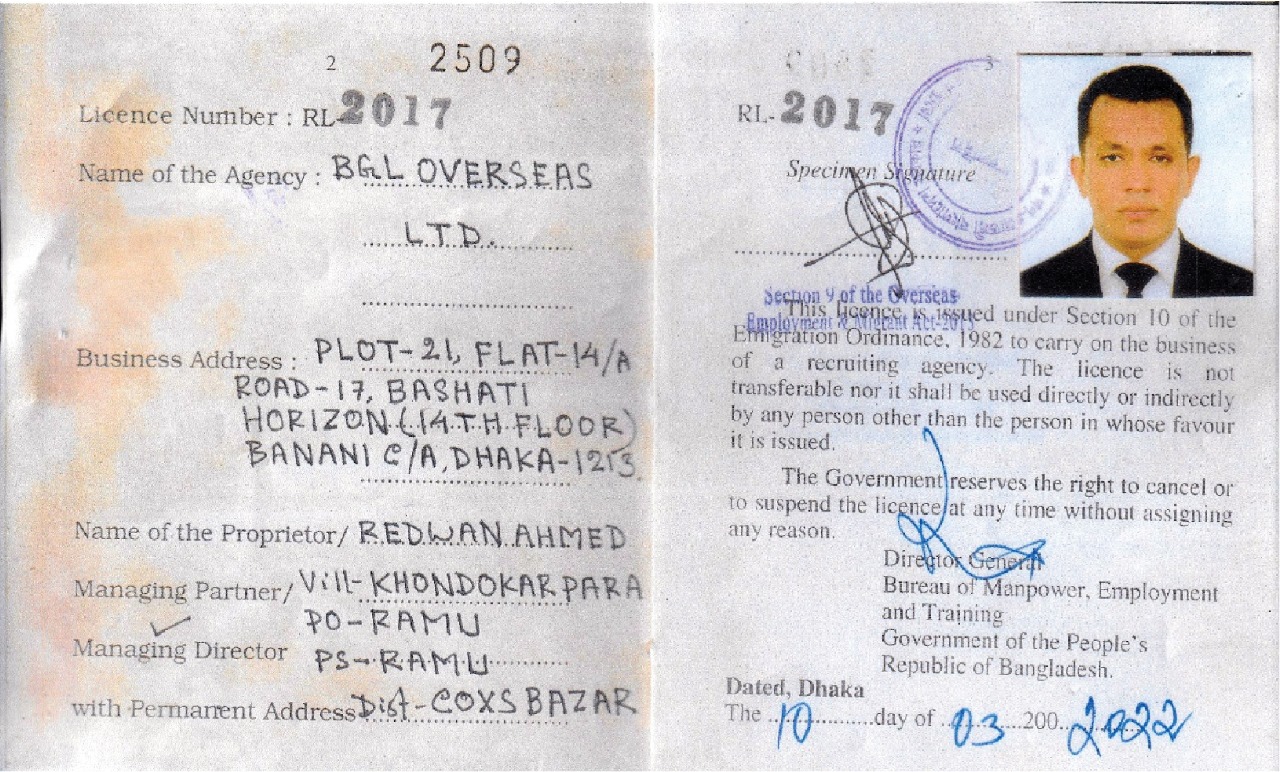 2 2509
Licence Number : RL-2017
Name of the Agency : BGL OVERSEAS
LTD.
Business Address : PLOT-21, FLAT-14/A
ROAD-17, BASHATI
HORIZON (14TH FLOOR)
BANANI C/A, DHAKA-1213
Name of the Proprietor/ REDWAN AHMED
Managing Partner/ Vill- KHONDOKAR PARA
PO-RAMU
Managing Director PS-RAMU
with Permanent Address Dist-COXS BAZAR
3
RL-2017
Specimen Signature
Section 9 of the Overseas
Employment & Migrant Act-2013
This licence is issued under Section 10 of the
Emigration Ordinance, 1982 to carry on the business
of a recruiting agency. The licence is not
transferable nor it shall be used directly or indirectly
by any person other than the person in whose favour
it is issued.
The Government reserves the right to cancel or
to suspend the licence at any time without assigning
any reason.
Director General
Bureau of Manpower, Employment
and Training
Government of the People's
Republic of Bangladesh.
Dated, Dhaka
The 10 day of 03 200 2022